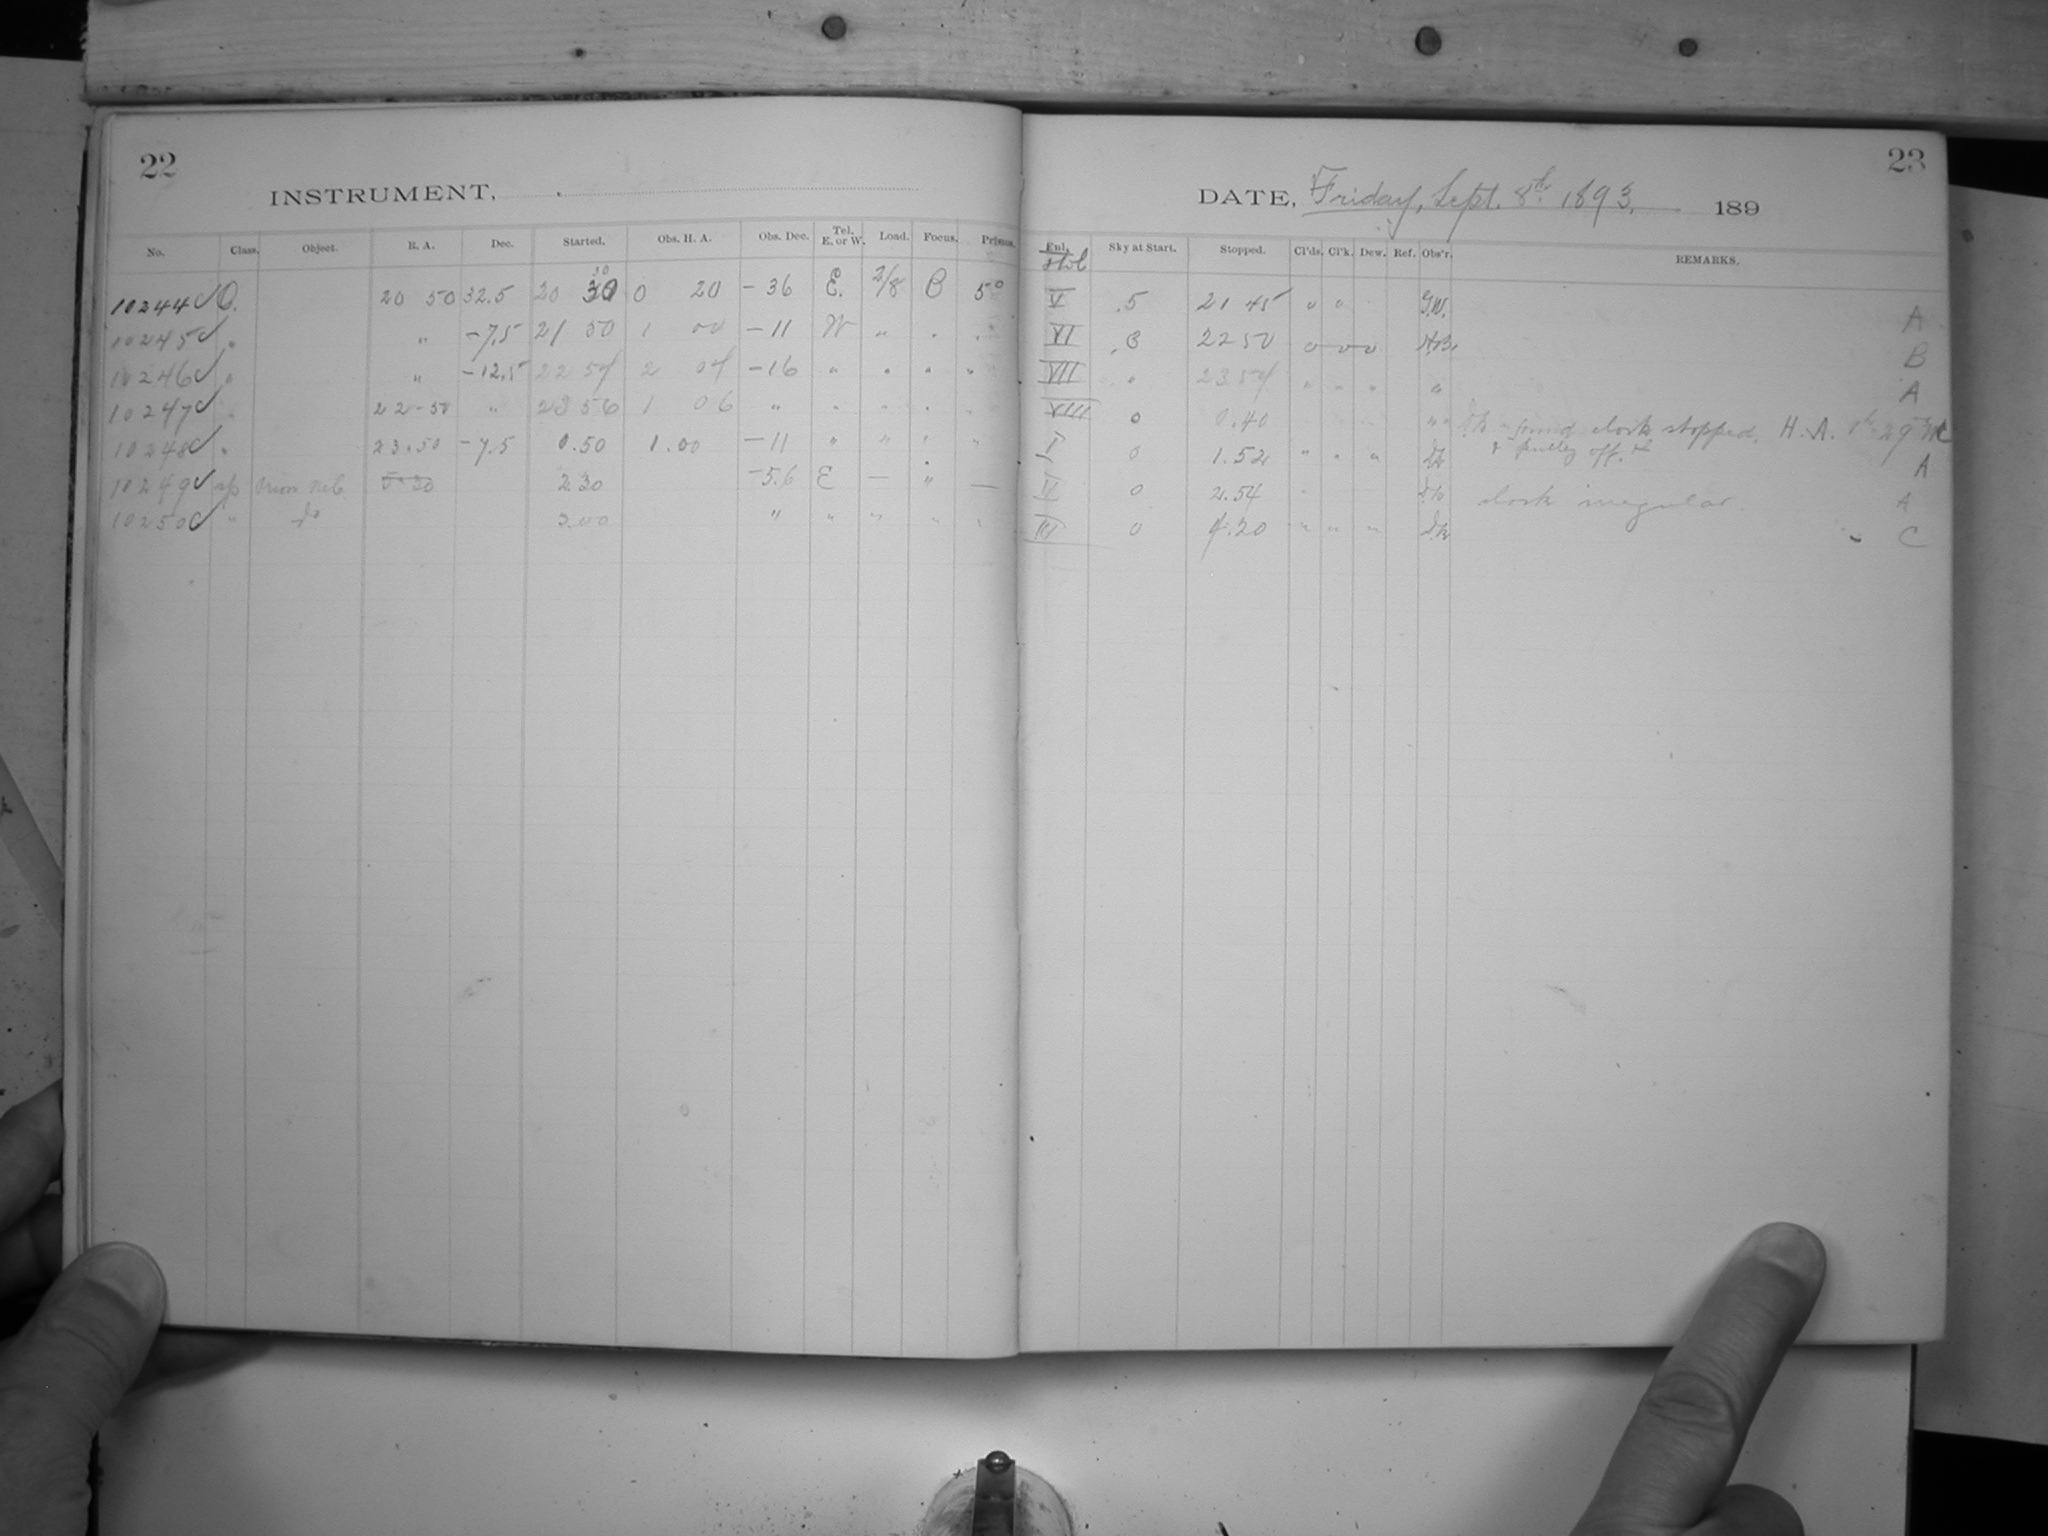 22
INSTRUMENT,
No. Class. Object. R. A. Dec. Started. Obs. H. A. Obs. Dec. Tel. E. or W. Load. Focus. Prisms.
10244 C. 20 50 32.5 20 30 0 20 -36 E. 2/8 B 5°
10245 " " -7.5 21 50 1 00 -11 W " " "
10246 " " -12.5 22 54 2 04 -16 " " " "
10247 " 22-50 " 23 56 1 06 " " " " "
10248 " 23.50 -7.5 0.50 1.00 -11 " " " "
10249 sp Orion Neb. 5 30 2.30 -5.6 E — " —
10250 " Do 3.00 " " " " "
23
DATE, Friday, Sept. 8th 1893. 189
Enl. Sky at Start. Stopped. Cl'ds. Cl'k. Dew. Ref. Obs'r. REMARKS.
V .5 21 45 0 0 G.W. A
VI 22 50 0 0 0 B
VII " 23 54 " " " " A
VIII 0 0.40 " " found clock stopped. H. A. 29
& pulley off.
I 0 1.52 " " " A
II 0 2.54 clock irregular A
III 0 4.20 " " " C